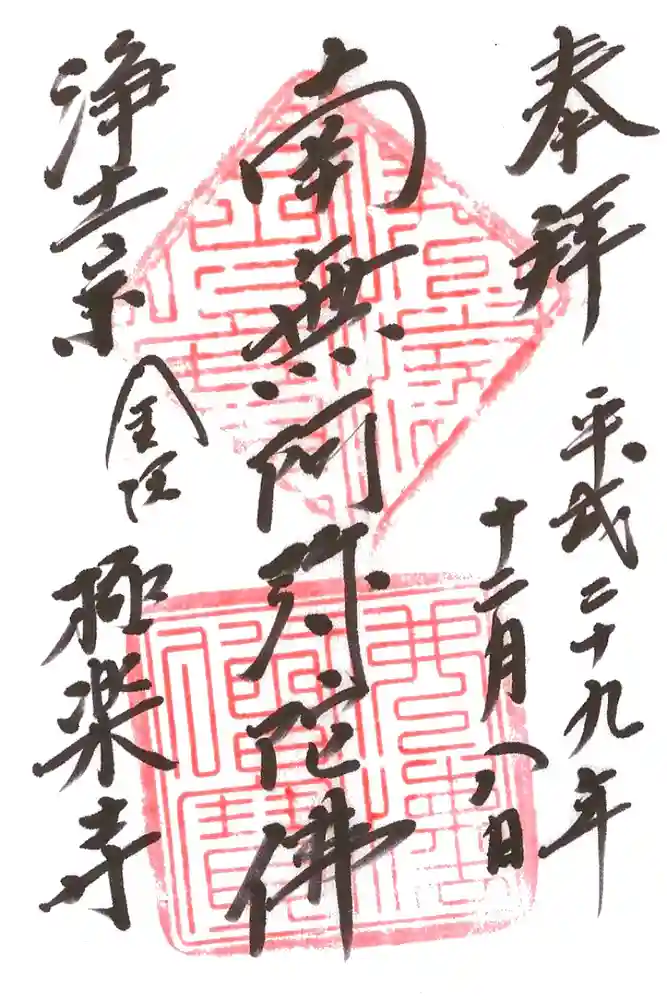 奉拝
平成二十九年
十二月八日
南無阿弥陀佛
浄土宗
極楽寺